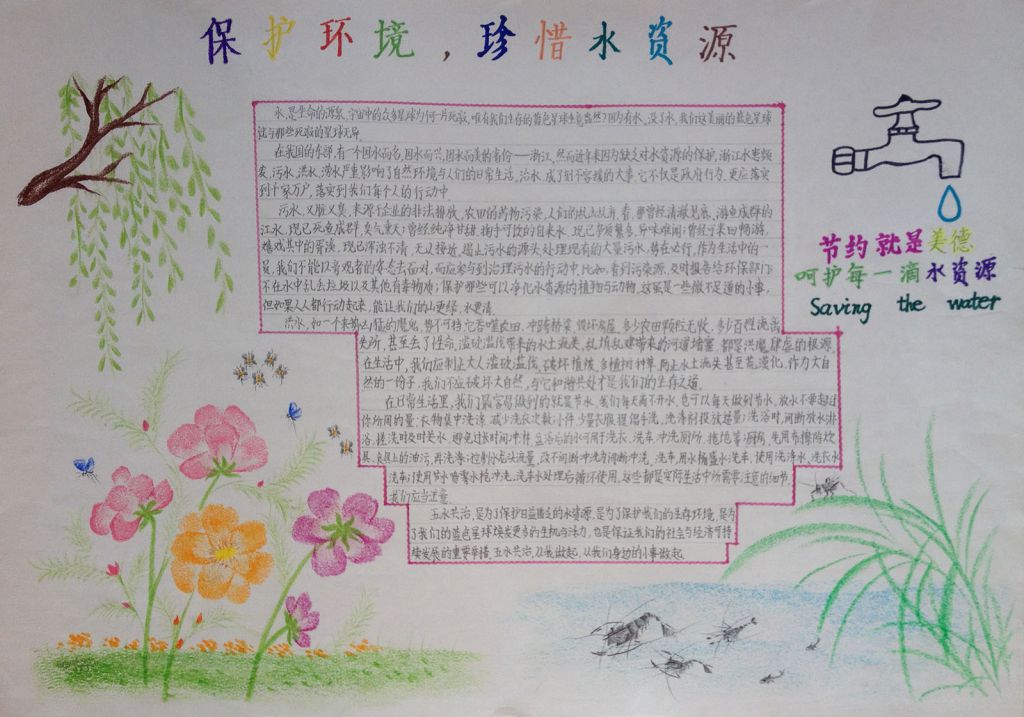 保护环境，珍惜水资源
水，是生命的源泉，宇宙中的众多星球为何一片死寂，唯有我们生存的蓝色星球生意盎然？因为有水，没了水，我们这美丽的蓝色星球
就与那些死寂的星球无异
在我国的东部，有一个因水而名，因水而兴，因水而美的省份——浙江，然而近年来因为缺乏对水资源的保护，浙江水患频
发，污水，洪水，涝水严重影响了自然环境与人们的日常生活，治水，成了刻不容缓的大事，它不仅是政府行为，更应落实
到千家万户，落实到我们每个人的行动中
污水，又脏又臭，来源于企业的非法排放，农田的药物污染，人们的
江水，现已死鱼成群，臭气熏天；曾经纯净甘甜，掬手可饮的自来水，现已杂质繁多，异味难闻；曾经
嬉戏其中的
员，我们不能以旁观者的姿态去面对，而应参与到治理污水的行动中，比如，看到污染源，及时报告给环保部门；
不在水中乱丢垃圾以及其他有毒物质；保护那些可以净化水资源的植物与动物，这虽是一些微不足道的小事，
但如果人人都行动起来，能让我们的山更绿，水更清
洪水，如一个来
失所，甚至丢了性命，滥砍滥伐带来的水土流失，乱填乱建带来的河道堵塞
在生活中，我们应制止人滥砍滥伐，破坏植被，多植树种草，防止水土流失甚至荒漠化，作为大自
然的一份子，我们不应破坏大自然，与它和谐共处才是我们的生存之道。
在日常生活里，我们最容易做到的就是节水，我们每天离不开水，也可以每天做到节水，放水不要超过
你所用的量；衣物集中洗涤，减少洗衣次数；小件，少量衣服提倡手洗，洗涤剂投放适量；洗浴时，间断放水淋
浴，搓洗时及时关水，避免过长时间冲淋，盆浴后的水可用于洗衣，洗车，冲洗厕所，拖地等；厨房，先用布擦除炊
具，食具上的油污，再洗涤；控制水龙头流量，改不间断冲洗为间断冲洗，洗车，用水桶盛水洗车，使用洗涤水，洗衣水
洗车；使用节水喷雾水枪冲洗，洗车水处理后循环使用，这些都是实际生活中所需要注意的细节，
我们应当注意
五水共治，是为了保护日益匮乏的水资源，是为了保护我们的生存环境，是为
了我们的蓝色星球焕发更多的生机与活力，也是保证我们的社会与经济可持
续发展的重要举措，五水共治，从我做起，从我们身边的小事做起
节约就是美德
呵护每一滴水资源
Saving the water